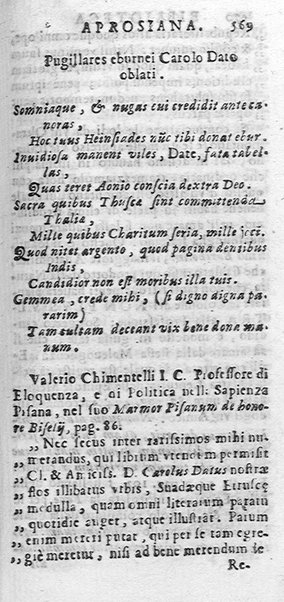 APROSIANA. 569
Pugillares eburnei Carolo Dato
oblati.
Somniaque, & nugas cui credidit ante ca-
noras,
Hoc tuus Heinsiades nũc tibi donat ebur.
Invidiosa manent viles, Date, fata tabel-
las,
Quas teret Aonio conscia dextra Deo.
Sacra quibus Thuscæ sint committenda
Thaliæ,
Mille quibus Charitum seria, mille joci.
Quod nitet argento, quod pagina dentibus
Indis,
Candidior non est moribus illa tuis.
Gemmea, crede mihi, (si digno digna pa-
rarim)
Tam cultam deceant vix bene dona ma-
num.
Valerio Chimentelli I. C. Professore di
Eloquenza, e di Politica nella Sapienza
Pisana, nel suo Marmor Pisanum de hono-
re Biselij, pag. 86.
„ Nec secus inter rarissimos mihi nu-
„ merandus, qui libitum videndi permisit
„ Cl. & Amiciss. D. Carolus Datus nostræ
„ flos illibatus vrbis, Suadæque Etruscę
„ medulla, quam omni literarum paratu
„ quotidie auget, atque illustrat. Parum
„ enim mereri putat, qui per se tam egre-
„ giè meretur, nisi ad bene merendum se
Re-